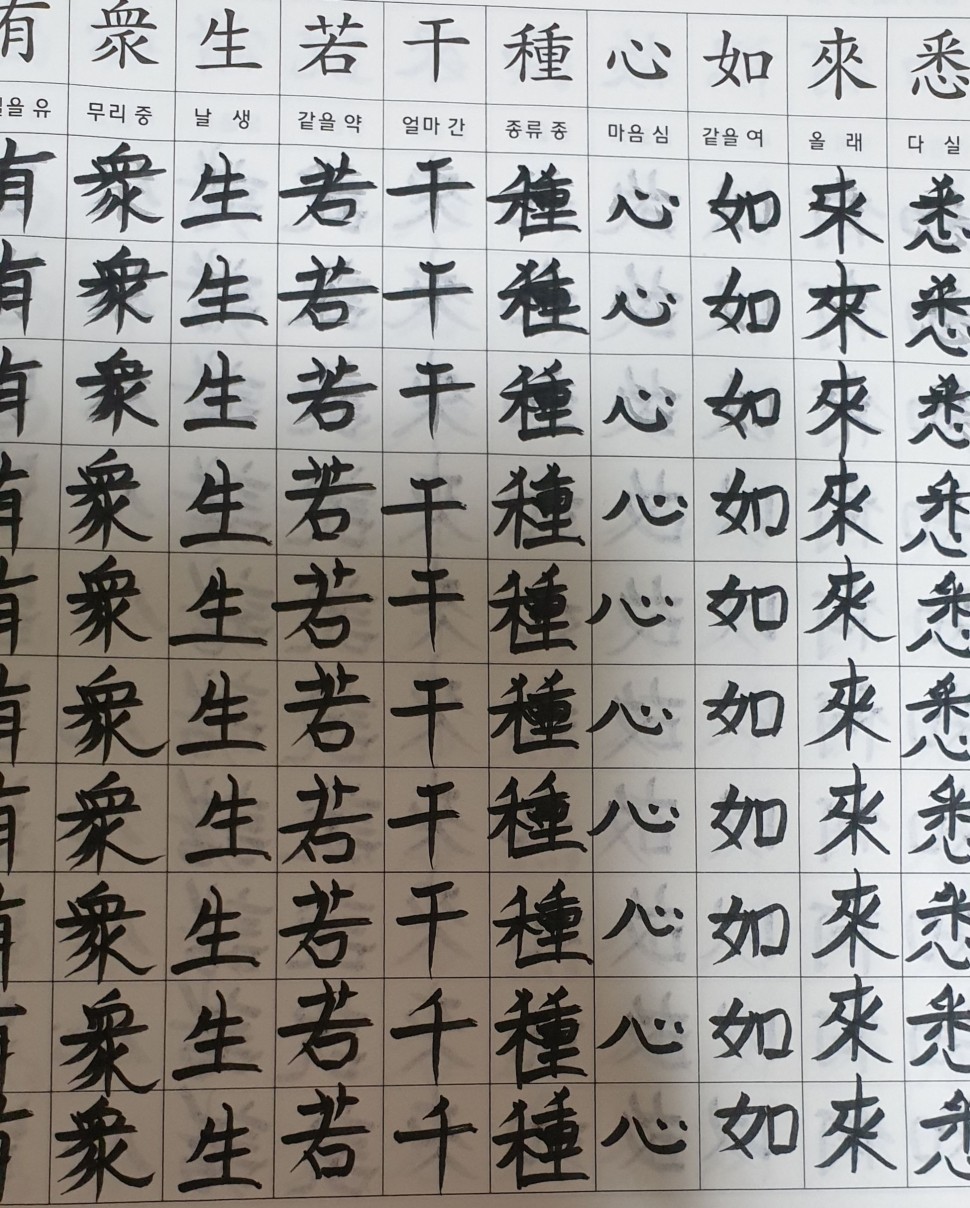 有 衆 生 若 干 種 心 如 來 悉
을 유 무리 중 날 생 같을 약 얼마 간 종류 종 마음 심 같을 여 올 래 다 실
有 衆 生 若 干 種 心 如 來 悉
有 衆 生 若 干 種 心 如 來 悉
有 衆 生 若 干 種 心 如 來 悉
有 衆 生 若 干 種 心 如 來 悉
有 衆 生 若 干 種 心 如 來 悉
有 衆 生 若 干 種 心 如 來 悉
有 衆 生 若 干 種 心 如 來 悉
有 衆 生 若 干 種 心 如 來 悉
有 衆 生 若 千 種 心 如 來 悉
有 衆 生 若 千 種 心 如 來 悉